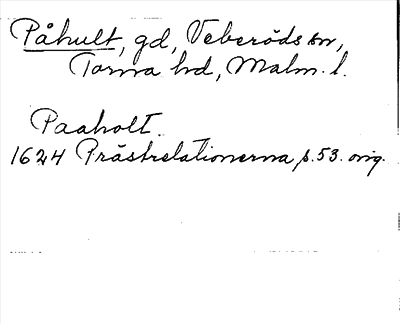 Påhult, gd, Veberöds sn,
Torna hd, Malm. l.
Paaholt.
1624 Prästrelationerna, p. 53. orig.